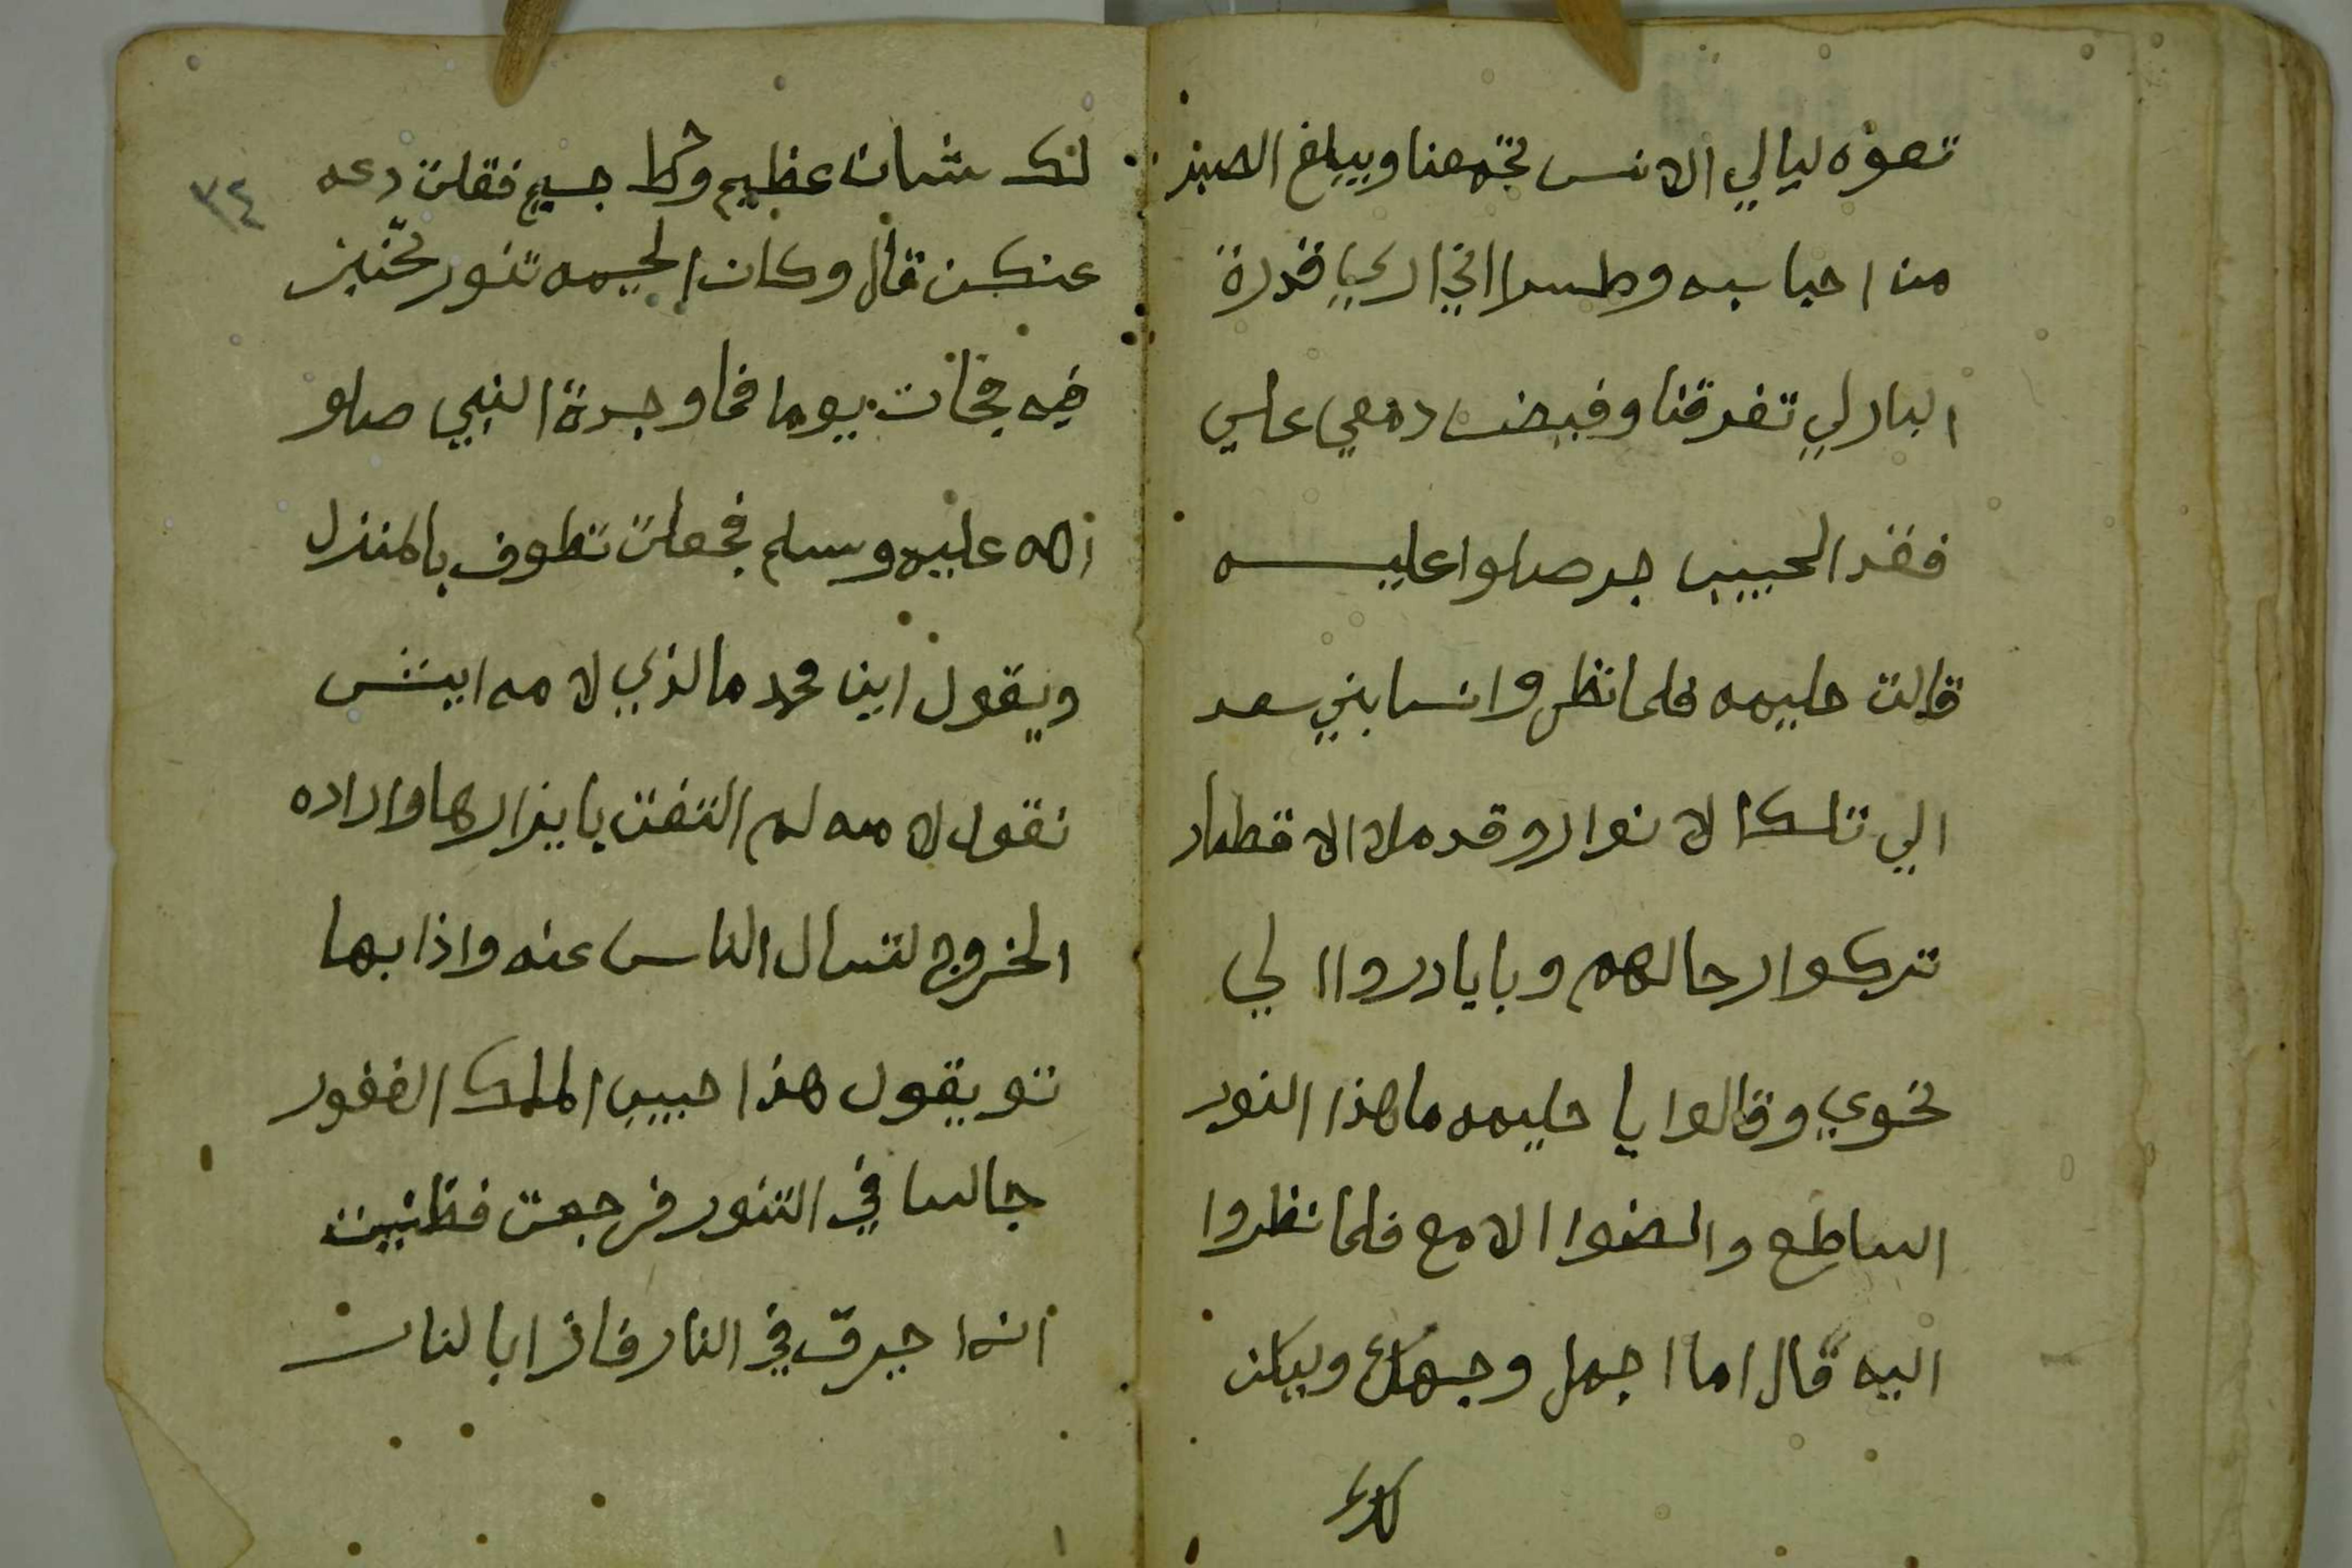 تعوه ليالي الانس تجمعنا ويبلغ الصبر
من احبابه وطرا اني اري قدرة
البار لي تفرقنا وفيض دمعي علي
فقد الحبيب جر صلوا عليه
قالت حليمه فلما نظروا نسا بني سعد
الي تلك الانوار وقد ملا الاقطار
تركوا رحالهم وبايادروا الي
نحوي وقالوا يا حليمه ما هذا النور
الساطع والضوا الامع فلما نظروا
اليه قال اما اجمل وجهك ويكن
لك شان عظيم وخط جسيم فقلت دعه
عنكن قال وكان لحيمه تنور تخبز
فيه فجات يوما فما وجدة النبي صلو
الله عليه وسلم فجعلت تطوف بالمنزل
ويقول اين محمد ما لذي لامه ايش
نقول لامه لم التفت يا يزارها واراده
الخروج لتسال الناس عنه واذا بها
تو يقول هذا حبيب الملك الغفور
جالسا في التنور فرجعت فظنيت
انه احرق في النار فاذا بالنار
٣٤